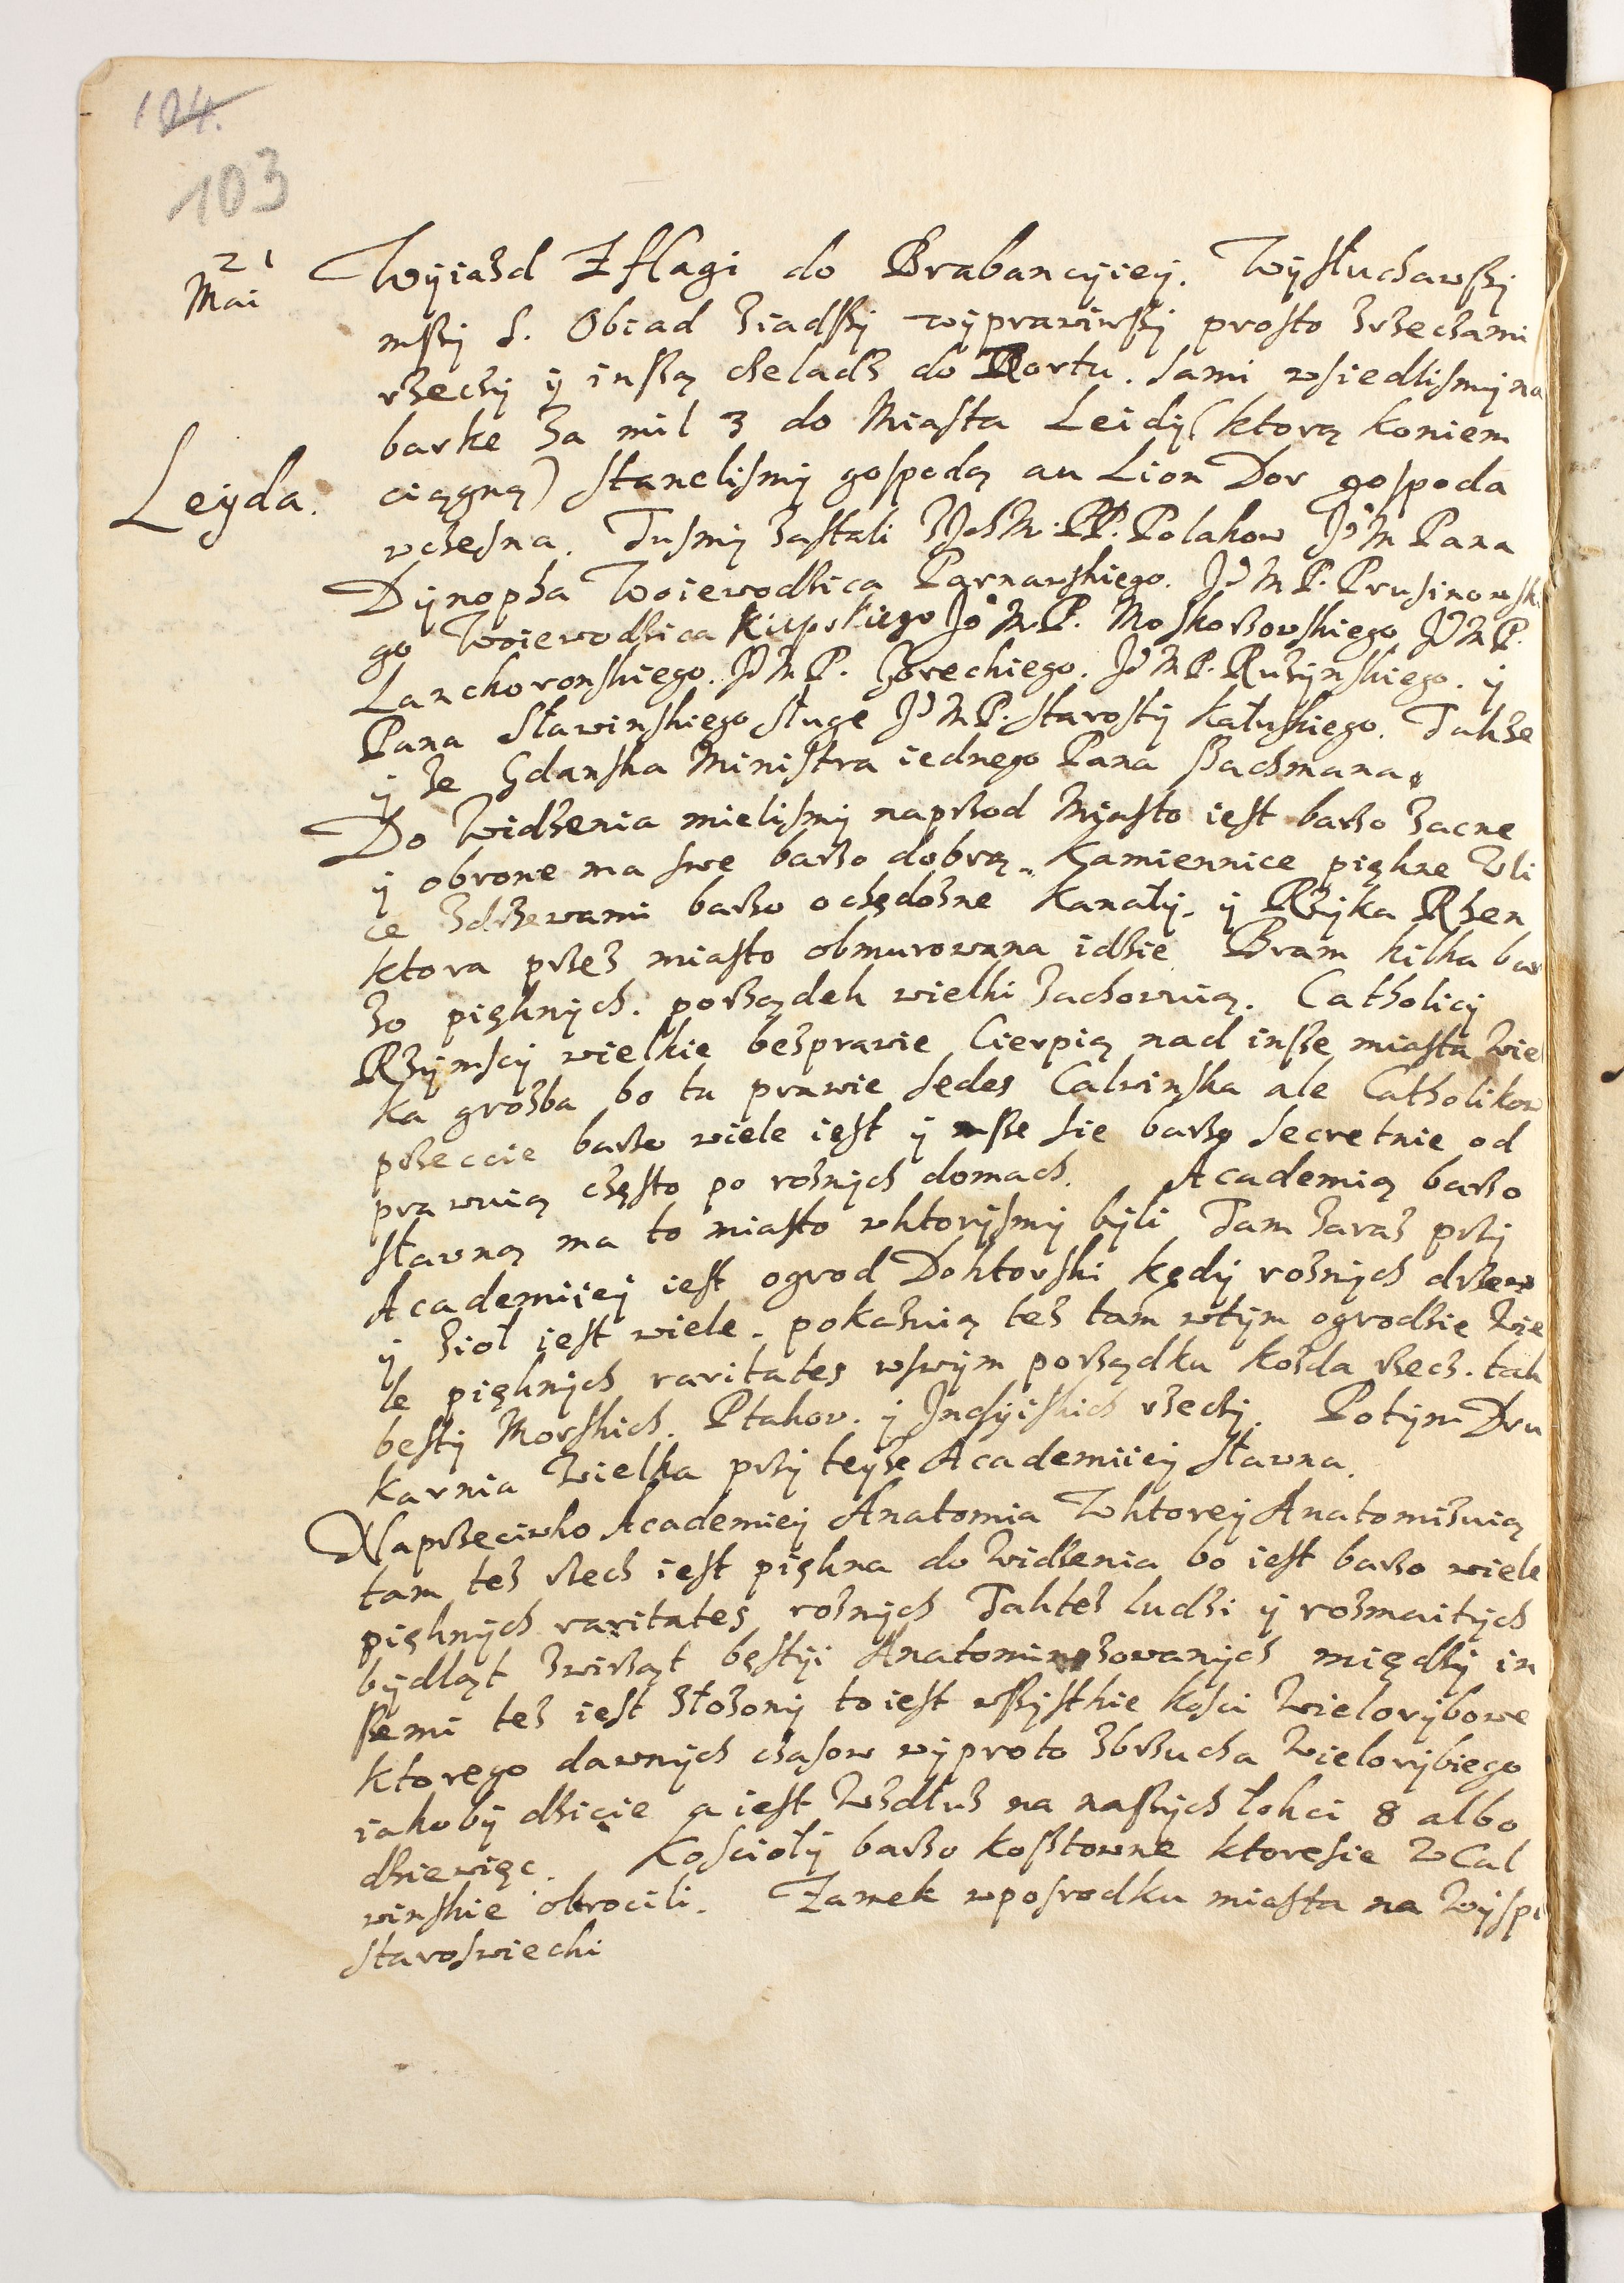 104.
103
21
Mai
Wyiazd Z Hagi do Brabancyiey. Wysłuchawszy
mszy S. Obiad ziadszy wyprawiwszy prosto zrzeczami
rzeczy y inszą cheladz do Dortu. Sami wsiedlismy na
barke za mil 3 do Miasta Leidy (ktorą koniem
Leyda.
ciągną) stanelismy gospodą au Lion Dor gospoda
wczesna. Tusmy zastali PP. Polakow Jo M Pana
Dynopha Woiewodzica Parnawskiego. Jo M P. Prusinowski
go Woiewodzica Jo M P. Moskorzowskiego Jo M P.
Lanckoronskiego. Jo M P. Goreckiego. Jo M P. Ruzynskiego. y
Pana Sławinskiego sługe Jo M P. Starosty Kałuskiego. Takze
y ze Gdanska Ministra iednego Pana Bachmana.
Do Widzenia mielismy naprzod Miasto iest barzo zacne
y obrone ma swe barzo dobrą. Kamiennice piękne Vli
ce zdrzewami barzo ochędozne Kanały. y Rzyka Rhen
ktora przez miasto obmurowana idzie Bram kilka bar
zo pięknych. porządek wielki zachowuią. Catholicy
Rzymscy wielkie bezprawie Cierpią nad insze miasta Wiel
ka grozba bo tu prawie sedes Calwinska ale Catholikow
przeccie barzo wiele iest y msze sie barzo secretnie od
prawuią często po roznych domach. Academią barzo
sławną ma to miasto wktorysmy byli Tam zaraz przy
Academiiey iest ogrod Doktorski kędy roznych drzew
y zioł iest wiele. pokazuią tez tam wtym ogrodzie Wie
le pięknych raritates wswym porządku kozda rzecz. tak
besty Morskich. Ptakow. y Indyiskich rzeczy. Potym Dru
karnia Wielka przy teyze Academiiey sławna.
Naprzeciwko Academiey Anatomia Wktorey Anatomizuią
tam tez rzecz iest piękna do widzenia bo iest barzo wiele
pięknych raritates roznych Taktez ludzi y rozmaitych
bydląt zwirząt bestyi Anatomizowanych między in
szemi tez iest złozony toiest wszystkie kosci Wielorybowe
ktorego dawnych czasow wyproto zbrzucha Wielorybiego
iakoby dzicie a iest Wzdłuz na naszych łokci 8 albo
dziewięc. Koscioły barzo kosztowne ktoresie WCal
winskie obrocili. Zamek wposrodku miasta na Wyspi
staroswiecki